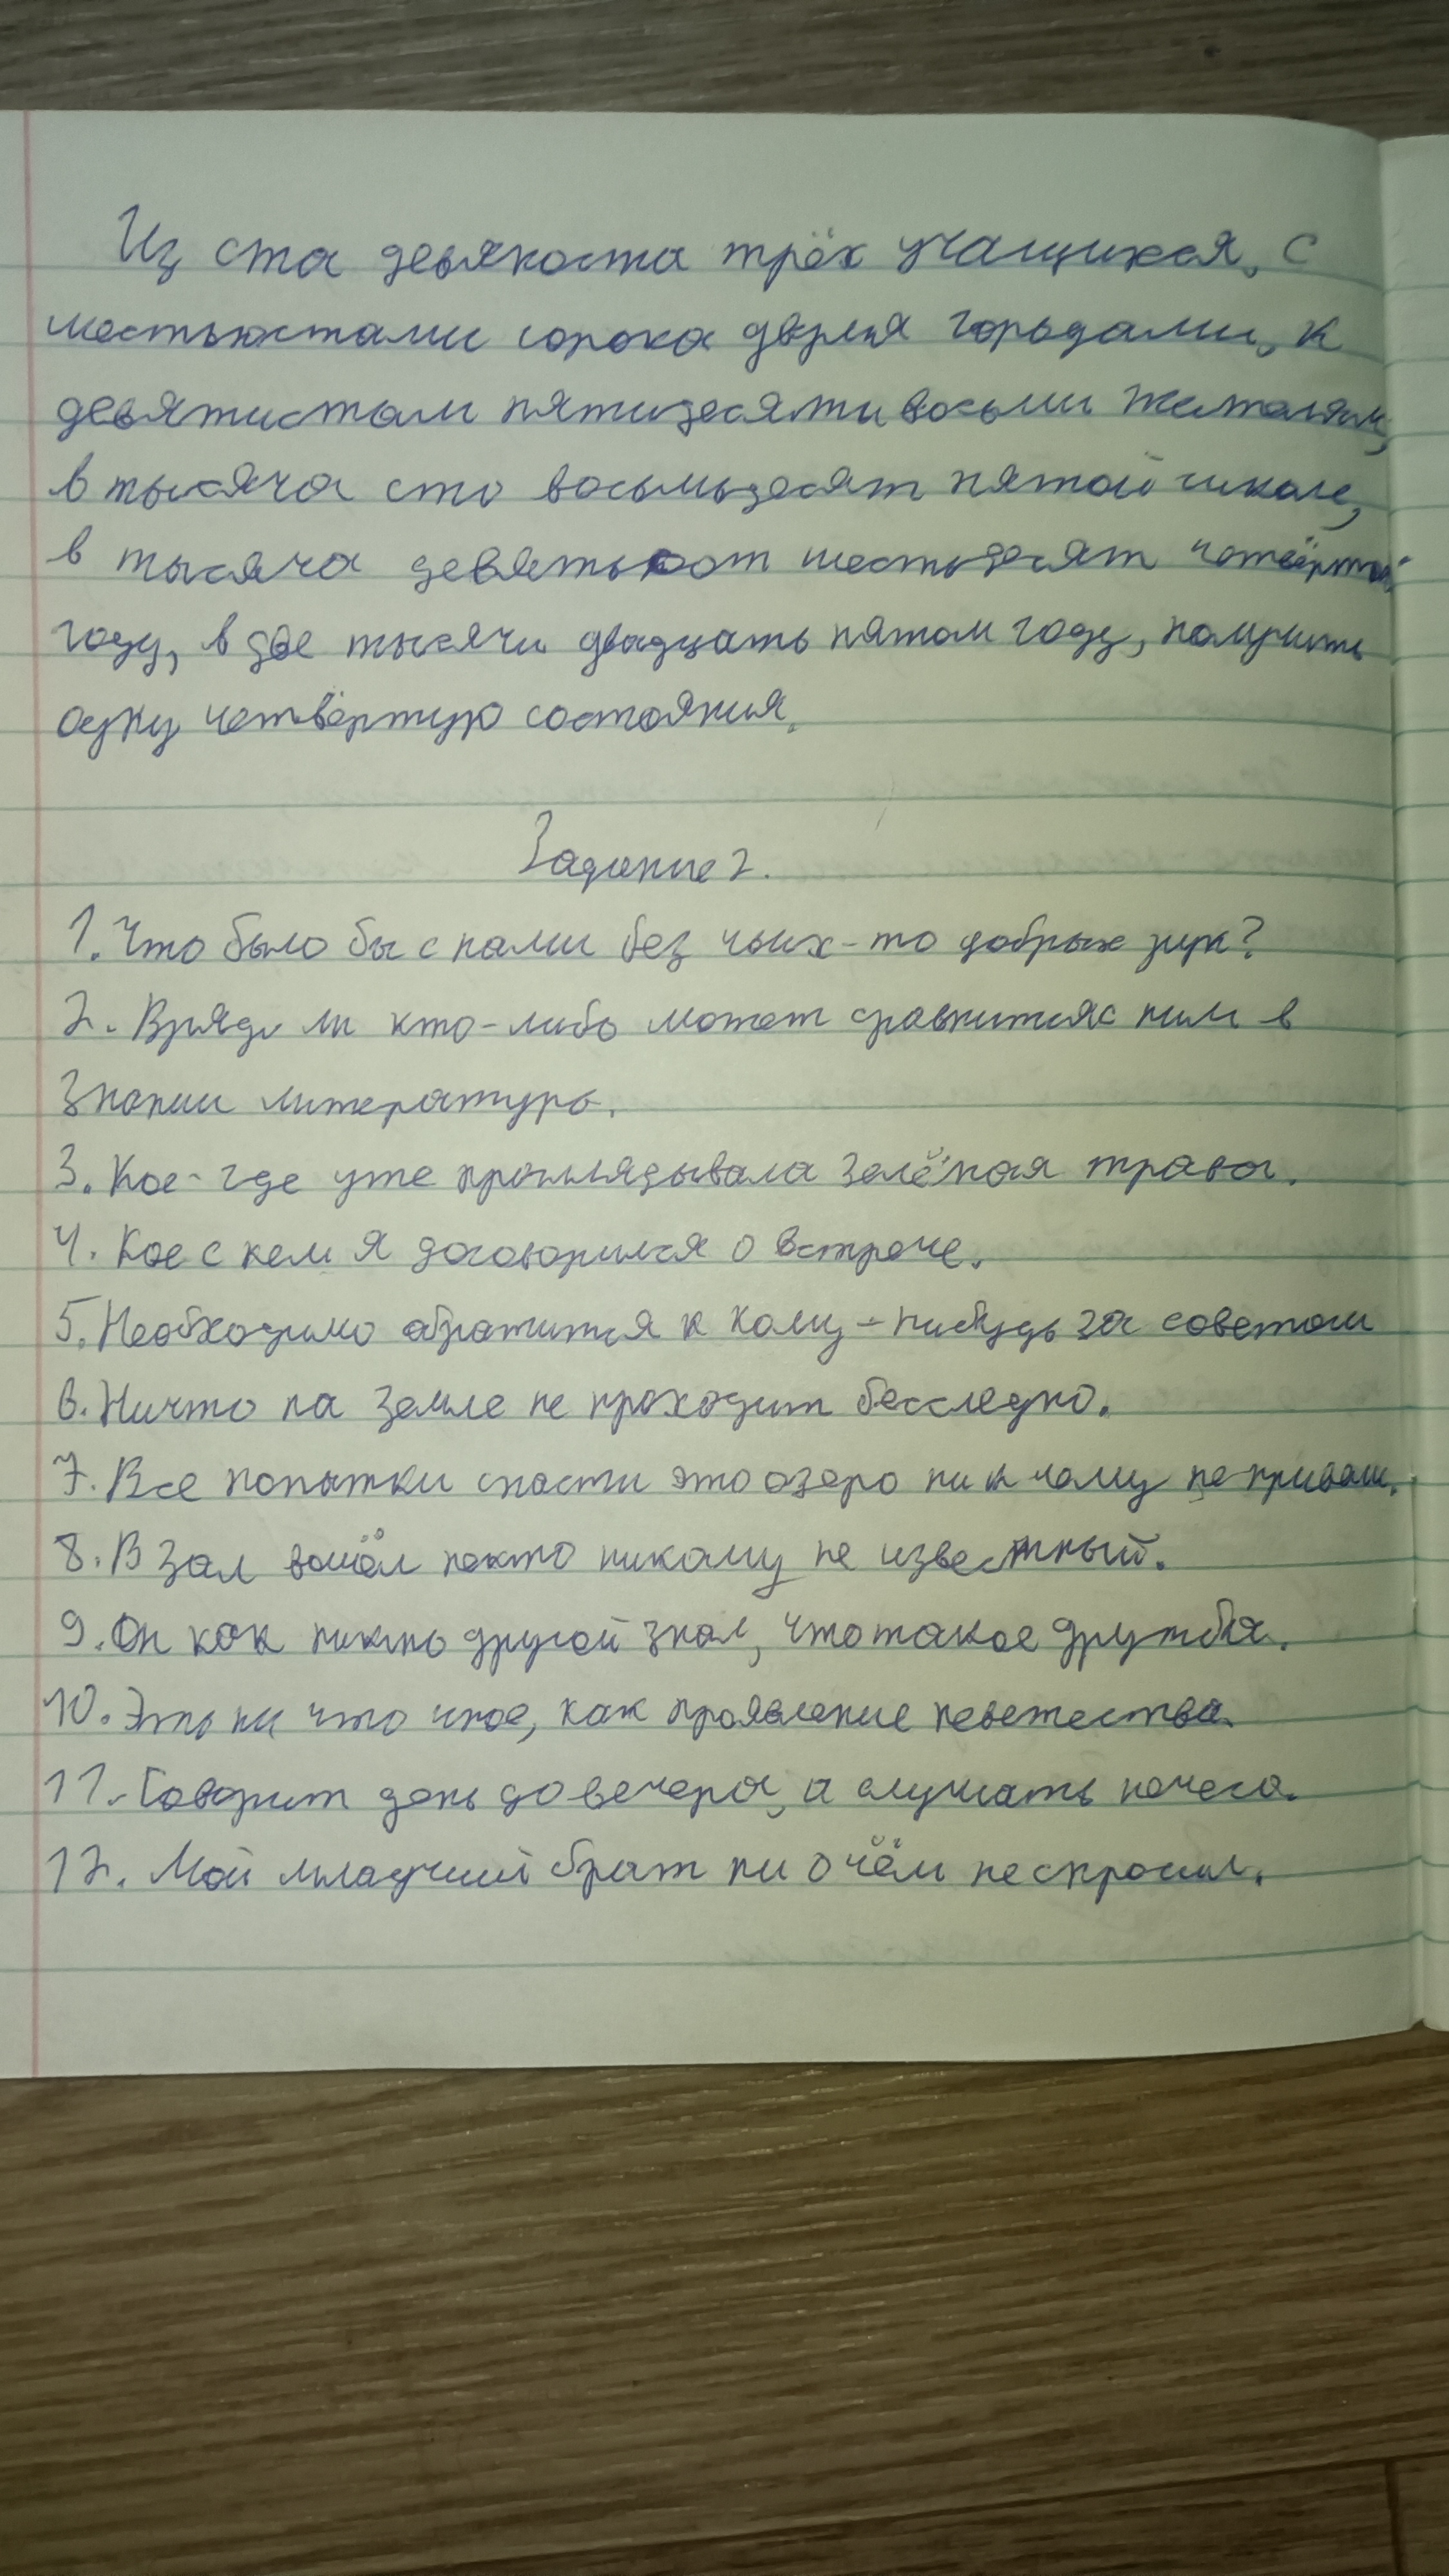 Из ста девяноста трёх учащихся, с
шестьюстами сорока двумя городами, к
девятистам пятидесяти восьми жителям,
в тысяча сто восемьдесят пятой школе,
в тысяча девятьсот шестьдесят четвёртом
году, в две тысячи двадцать пятом году, получить
одну четвёртую состояния.
Задание 2.
1. Что было бы с нами без чьих-то добрых рук?
2. Вряд ли кто-либо может сравнится с ним в
знании литературы.
3. Кое-где уже проглядывала зелёная трава.
4. Кое с кем я договорился о встрече.
5. Необходимо обратится к кому-нибудь за советом
6. Ничто на земле не проходит бесследно.
7. Все попытки спасти это озеро ни к чему не привели.
8. В зал вошёл некто никому не известный.
9. Он как никто другой знал, что такое дружба.
10. Это ни что иное, как проявление невежества.
11. Говорит день до вечера, а слушать нечего.
12. Мой младший брат ни о чём не спросил.